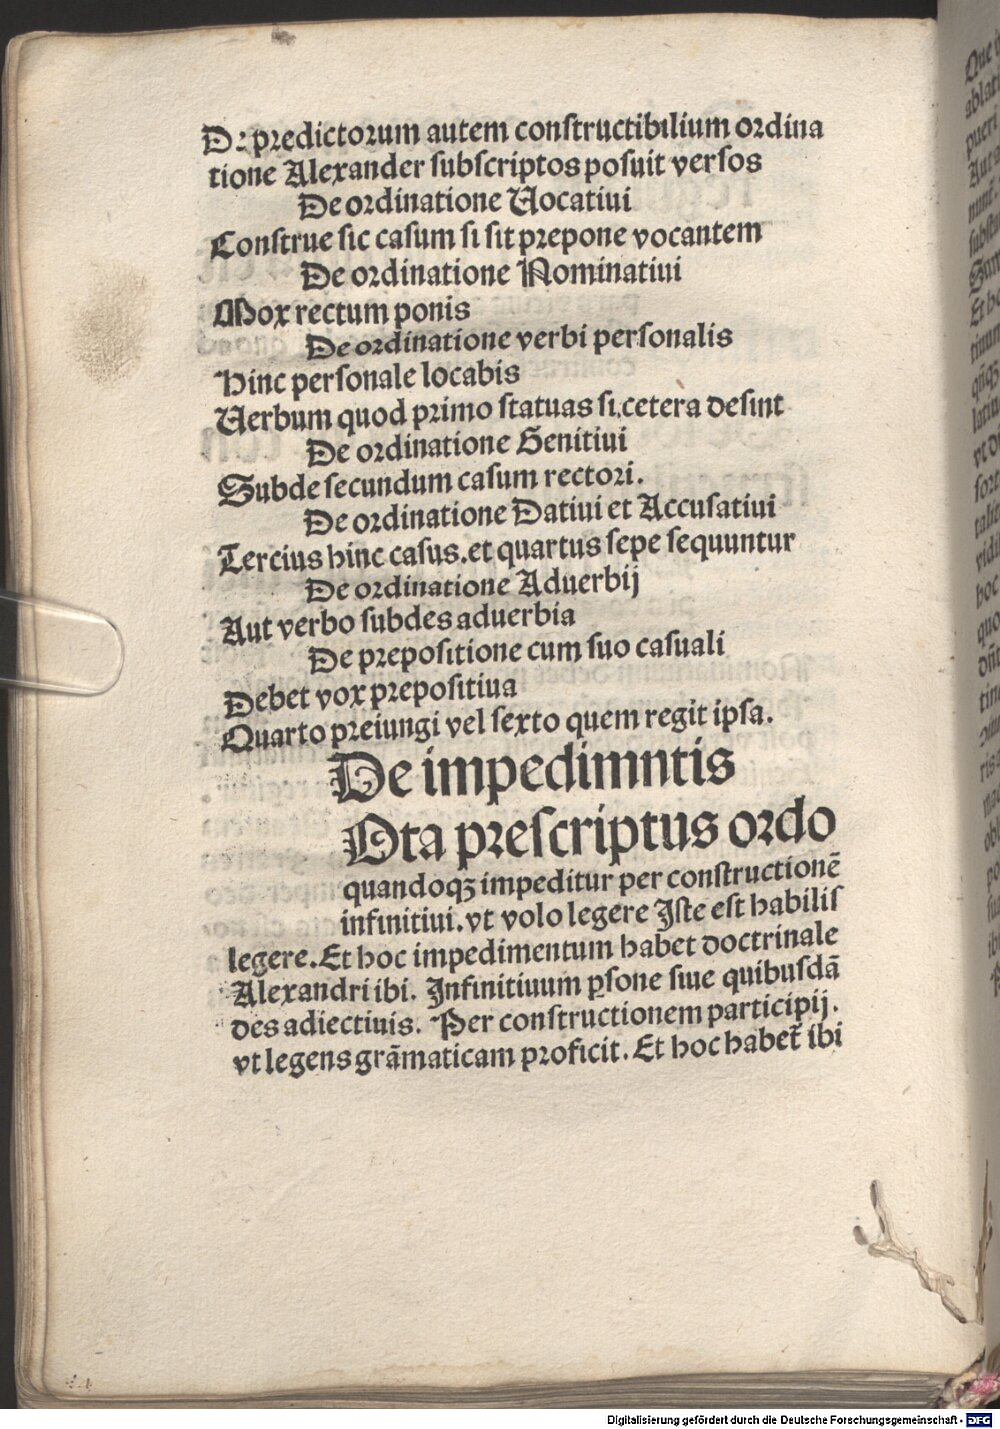 De predictorum autem constructibilium ordina
tione Alexander subscriptos posuit versos
De ordinatione Uocatiui
Construe sic casum si sit prepone vocantem
De ordinatione Nominatiui
Mox rectum ponis
De ordinatione verbi personalis
hinc personale locabis
Uerbum quod primo statuas si.cetera desint
De ordinatione Genitiui
Subde secundum casum rectori.
De ordinatione Datiui et Accusatiui
Tercius hinc casus.et quartus sepe sequuntur
De ordinatione Aduerbij
Aut verbo subdes aduerbia
De prepositione cum suo casuali
Debet vox prepositiua
Quarto preiungi vel sexto quem regit ipsa.
De impedimntis
Ota prescriptus ordo
quandoqꝫ impeditur per constructionē
infinitiui.vt volo legere Iste est habilis
legere.Et hoc impedimentum habet doctrinale
Alexandri ibi. Infinitiuum ꝑsone siue quibusdā
des adiectiuis. Per constructionem participij.
vt legens grāmaticam proficit.Et hoc habet̄ ibi
Digitalisierung gefördert durch die Deutsche Forschungsgemeinschaft - DFG